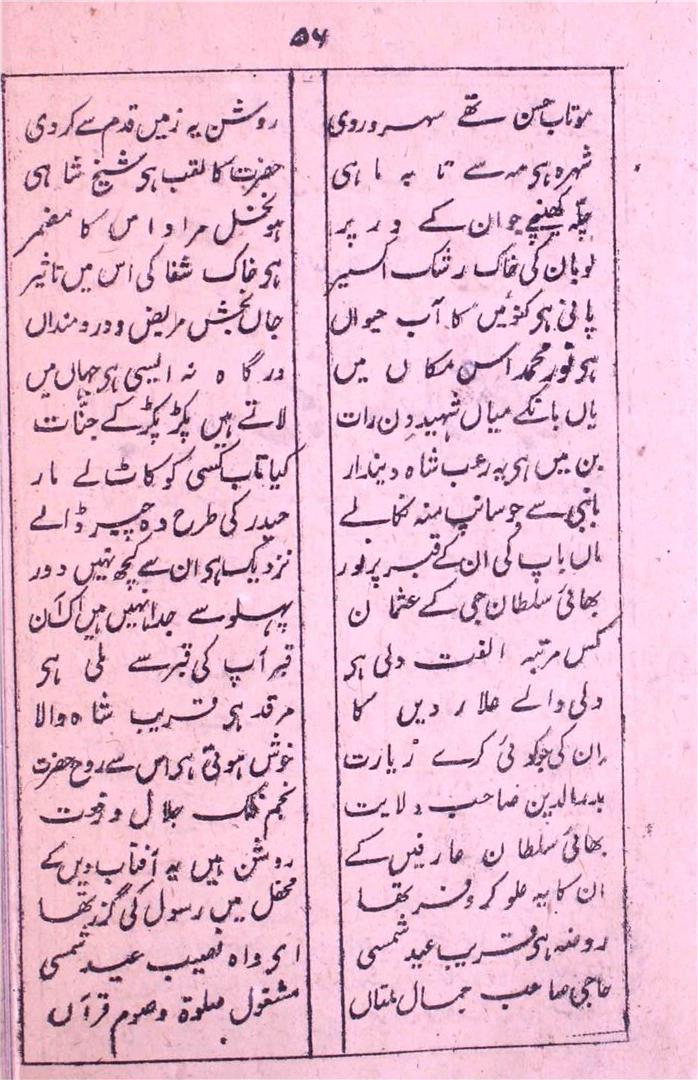 ۵۶
موتاب حسن تھے سہروردی روشن یہ زمیں قدم سے کر دی
شہرہ ہی مہ سے تا بہ ماہی حضرت کا لقب ہی شیخ شاہی
چلّہ کھینچے جو ان کے در پر ہو نخل مراد اس کا مضمر
لوبان کی خاک رشک اکسیر ہی خاک شفا کی اس میں تاثیر
پانی ہی کنوئیں کا آب حیواں جاں بخش مریض و دردمنداں
ہی نور محمد اس مکاں میں درگاہ نہ ایسی ہی جہاں میں
یاں بانکے میاں شہید دن رات لاتے ہیں پکڑ پکڑ کے جنّات
بن میں ہی یہ رعب شاہ دیندار کیا تاب کسی کو کاٹ لے مار
بانبی سے جو سانپ منہ نکالے حیدر کی طرح وہ چیر ڈالے
ماں باپ کی ان کے قبر پر نور نزدیک ہی ان سے کچھ نہیں دور
بھائی سلطان جی کے عثمان پہلو سے جدا نہیں ہیں اک آن
کس مرتبہ الفت دلی ہی قبر آپ کی قبر سے ملی ہی
دلی والے علار دیں کا مرقد ہی قریب شاہ والا
ان کی جو کوئی کرے زیارت خوش ہوتی ہی اس سے روح حضرت
بدرالدین صاحب ولایت نجم فلک جلال و رفعت
بھائی سلطان عارفیں کے روشن ہیں یہ آفتاب دیں کے
ان کا یہ علو کر و فر تھا محفل میں رسول کی گزر تھا
روضہ ہی قریب عید شمسی ای واہ نصیب عید شمسی
حاجی صاحب جمال ملتاں مشغول صلوٰة و صوم قرآں